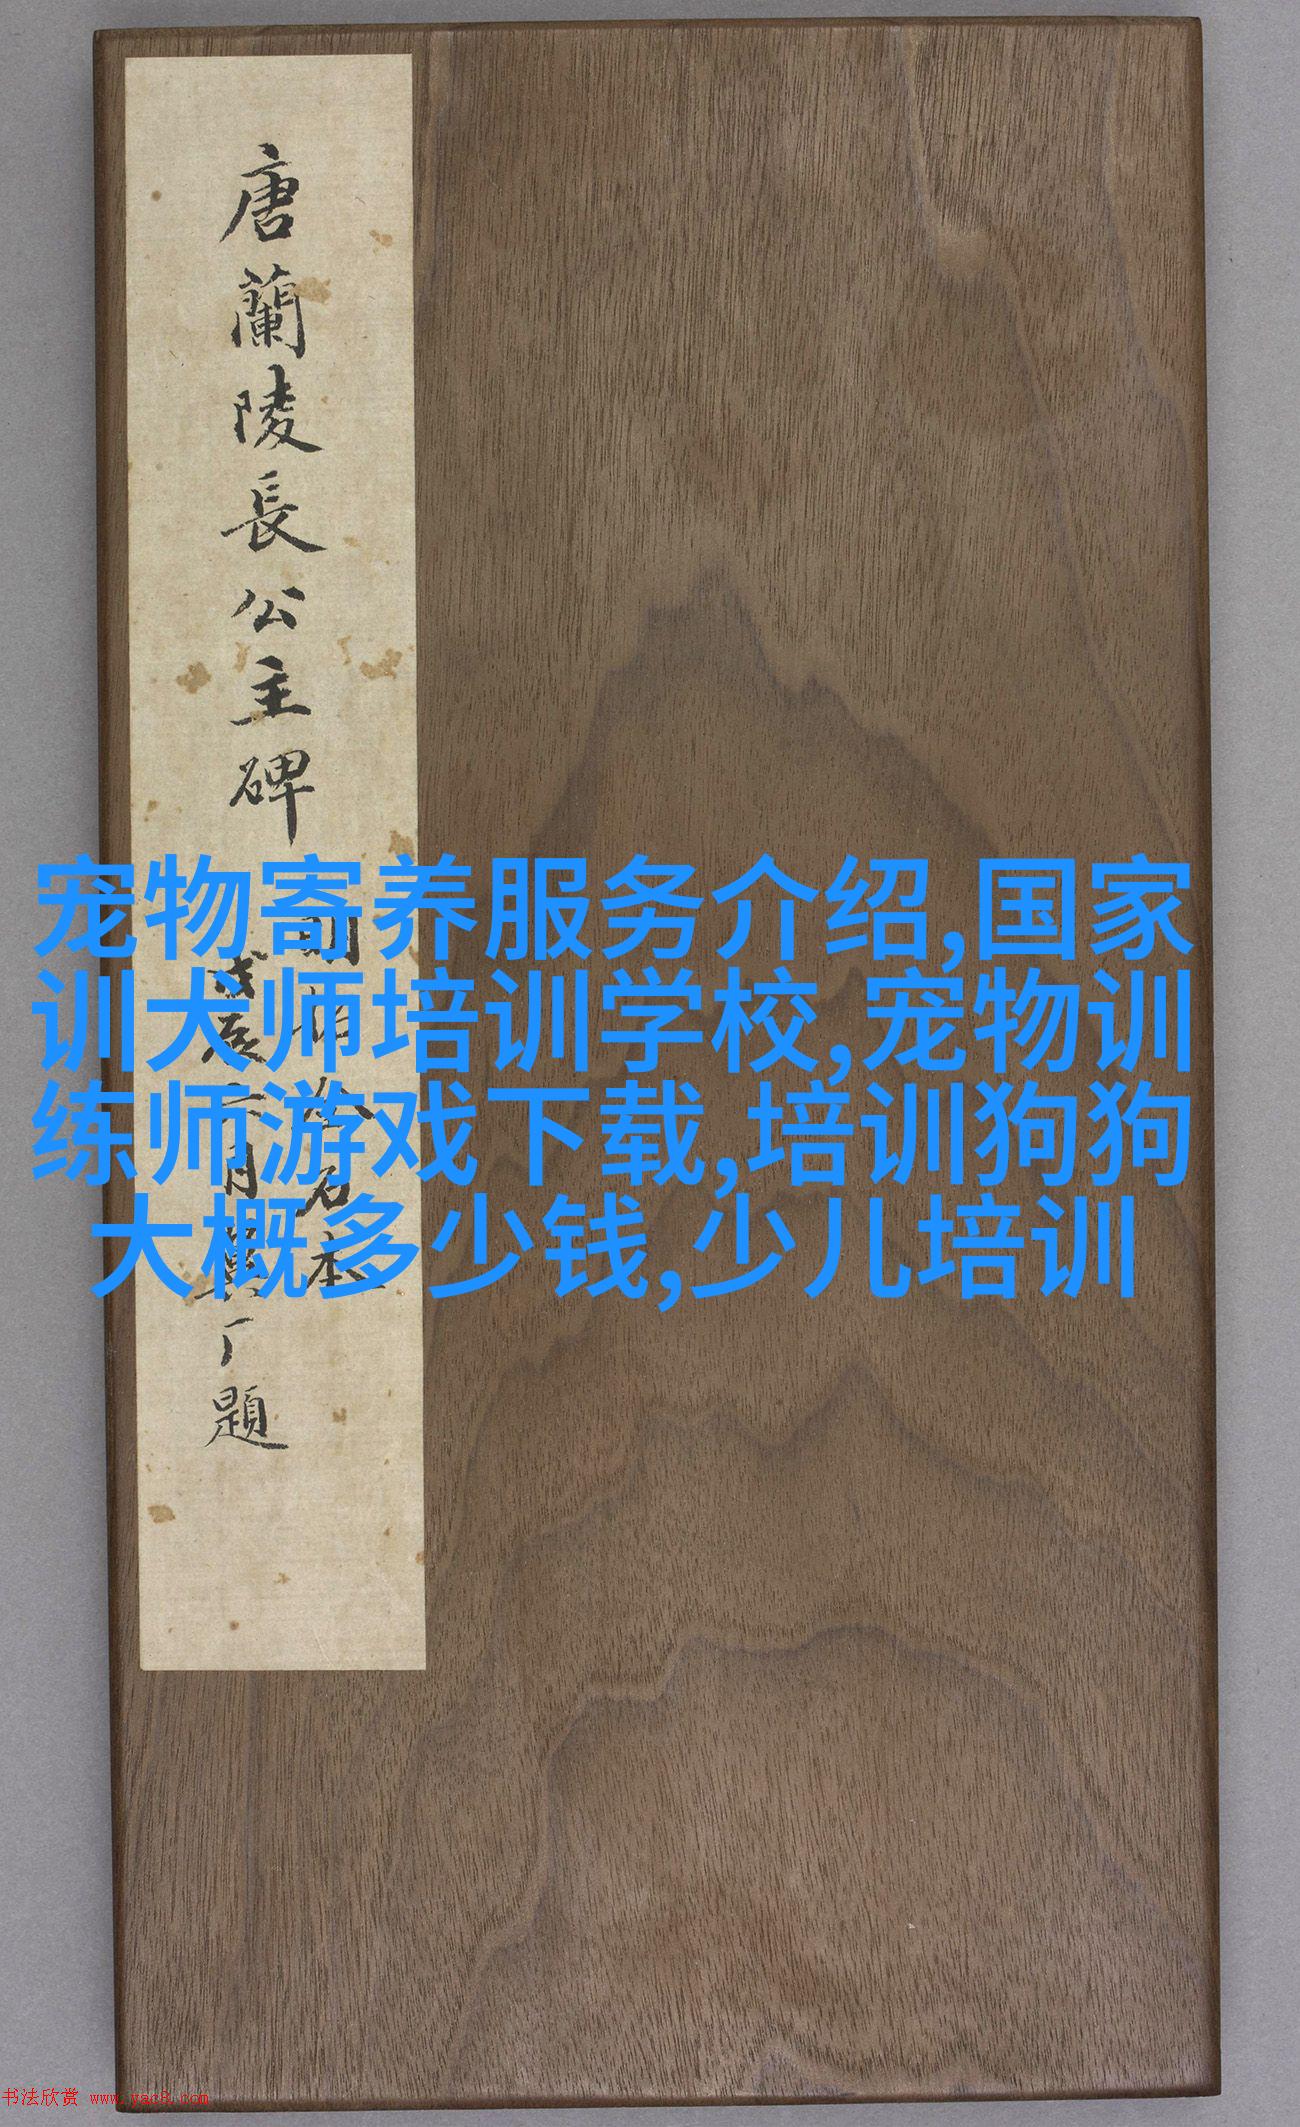 唐蘭陵長公主碑
宠物寄养服务介绍,国家
训犬师培训学校,宠物训
练师游戏下载,培训狗狗
大概多少钱,少儿培训
書法欣赏 www.yac8.com